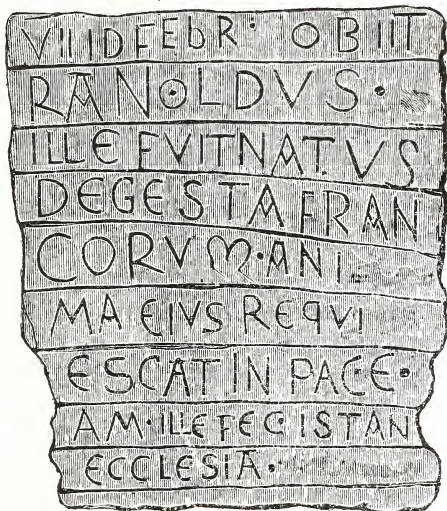 VIIIDFEbR· OBIIT
RANOLDVS·
ILLE FVITNATVS
DEGESTA FRAN
CORVM·ANI
MA EIVS REQVI
ESCAT IN PACE·
AM·ILLE FEC·ISTAN
ECCLESIA·